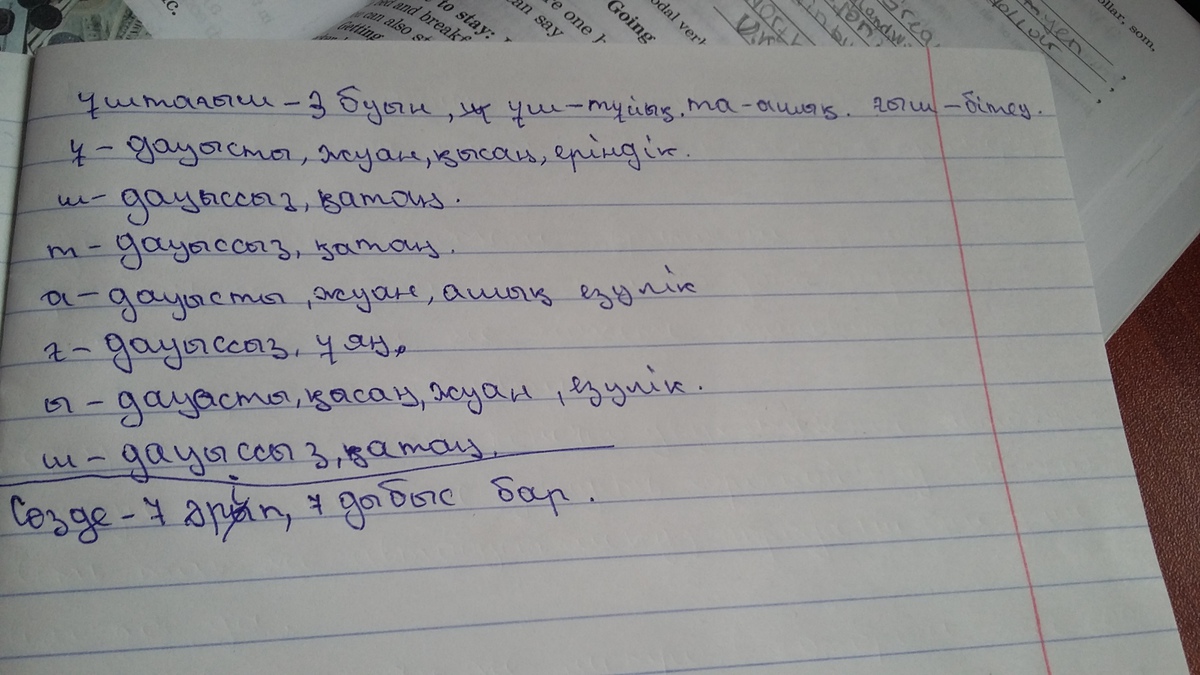 ic.
to stay:
and breakf
can also st
Getting
re one
an say
Going
odal verb
ollar, som,
ұштағыш – 3 буын, ұш – тұйық, та – ашық. ғыш – бітеу.
ұ – дауысты, жуан, қысаң, еріндік.
ш – дауыссыз, қатаң.
т – дауыссыз, қатаң.
а – дауысты, жуан, ашық езулік
ғ – дауыссыз, ұяң.
ы – дауасты, қасаң, жуан, езулік.
ш – дауыссыз, қатаң.
Сөзде – 7 әріп, 7 дыбыс бар.